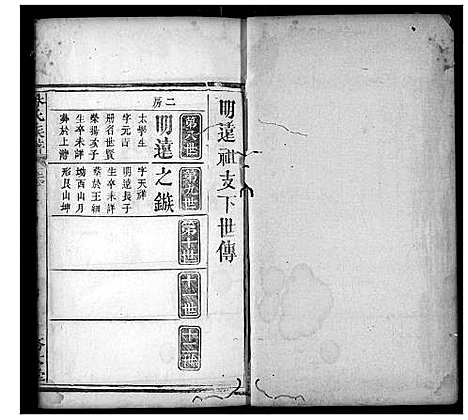 明遠祉支下世傳
第八世
第九世
第十世
十一世
十二世
二房
明遠
太學生
字元吉
册名世賢
榮揚次子
生卒未詳
葬於上灣
之鏃
字天祥
明遠長子
生卒未詳
葬於王細
坳酉山月
形艮山坤
氏族譜